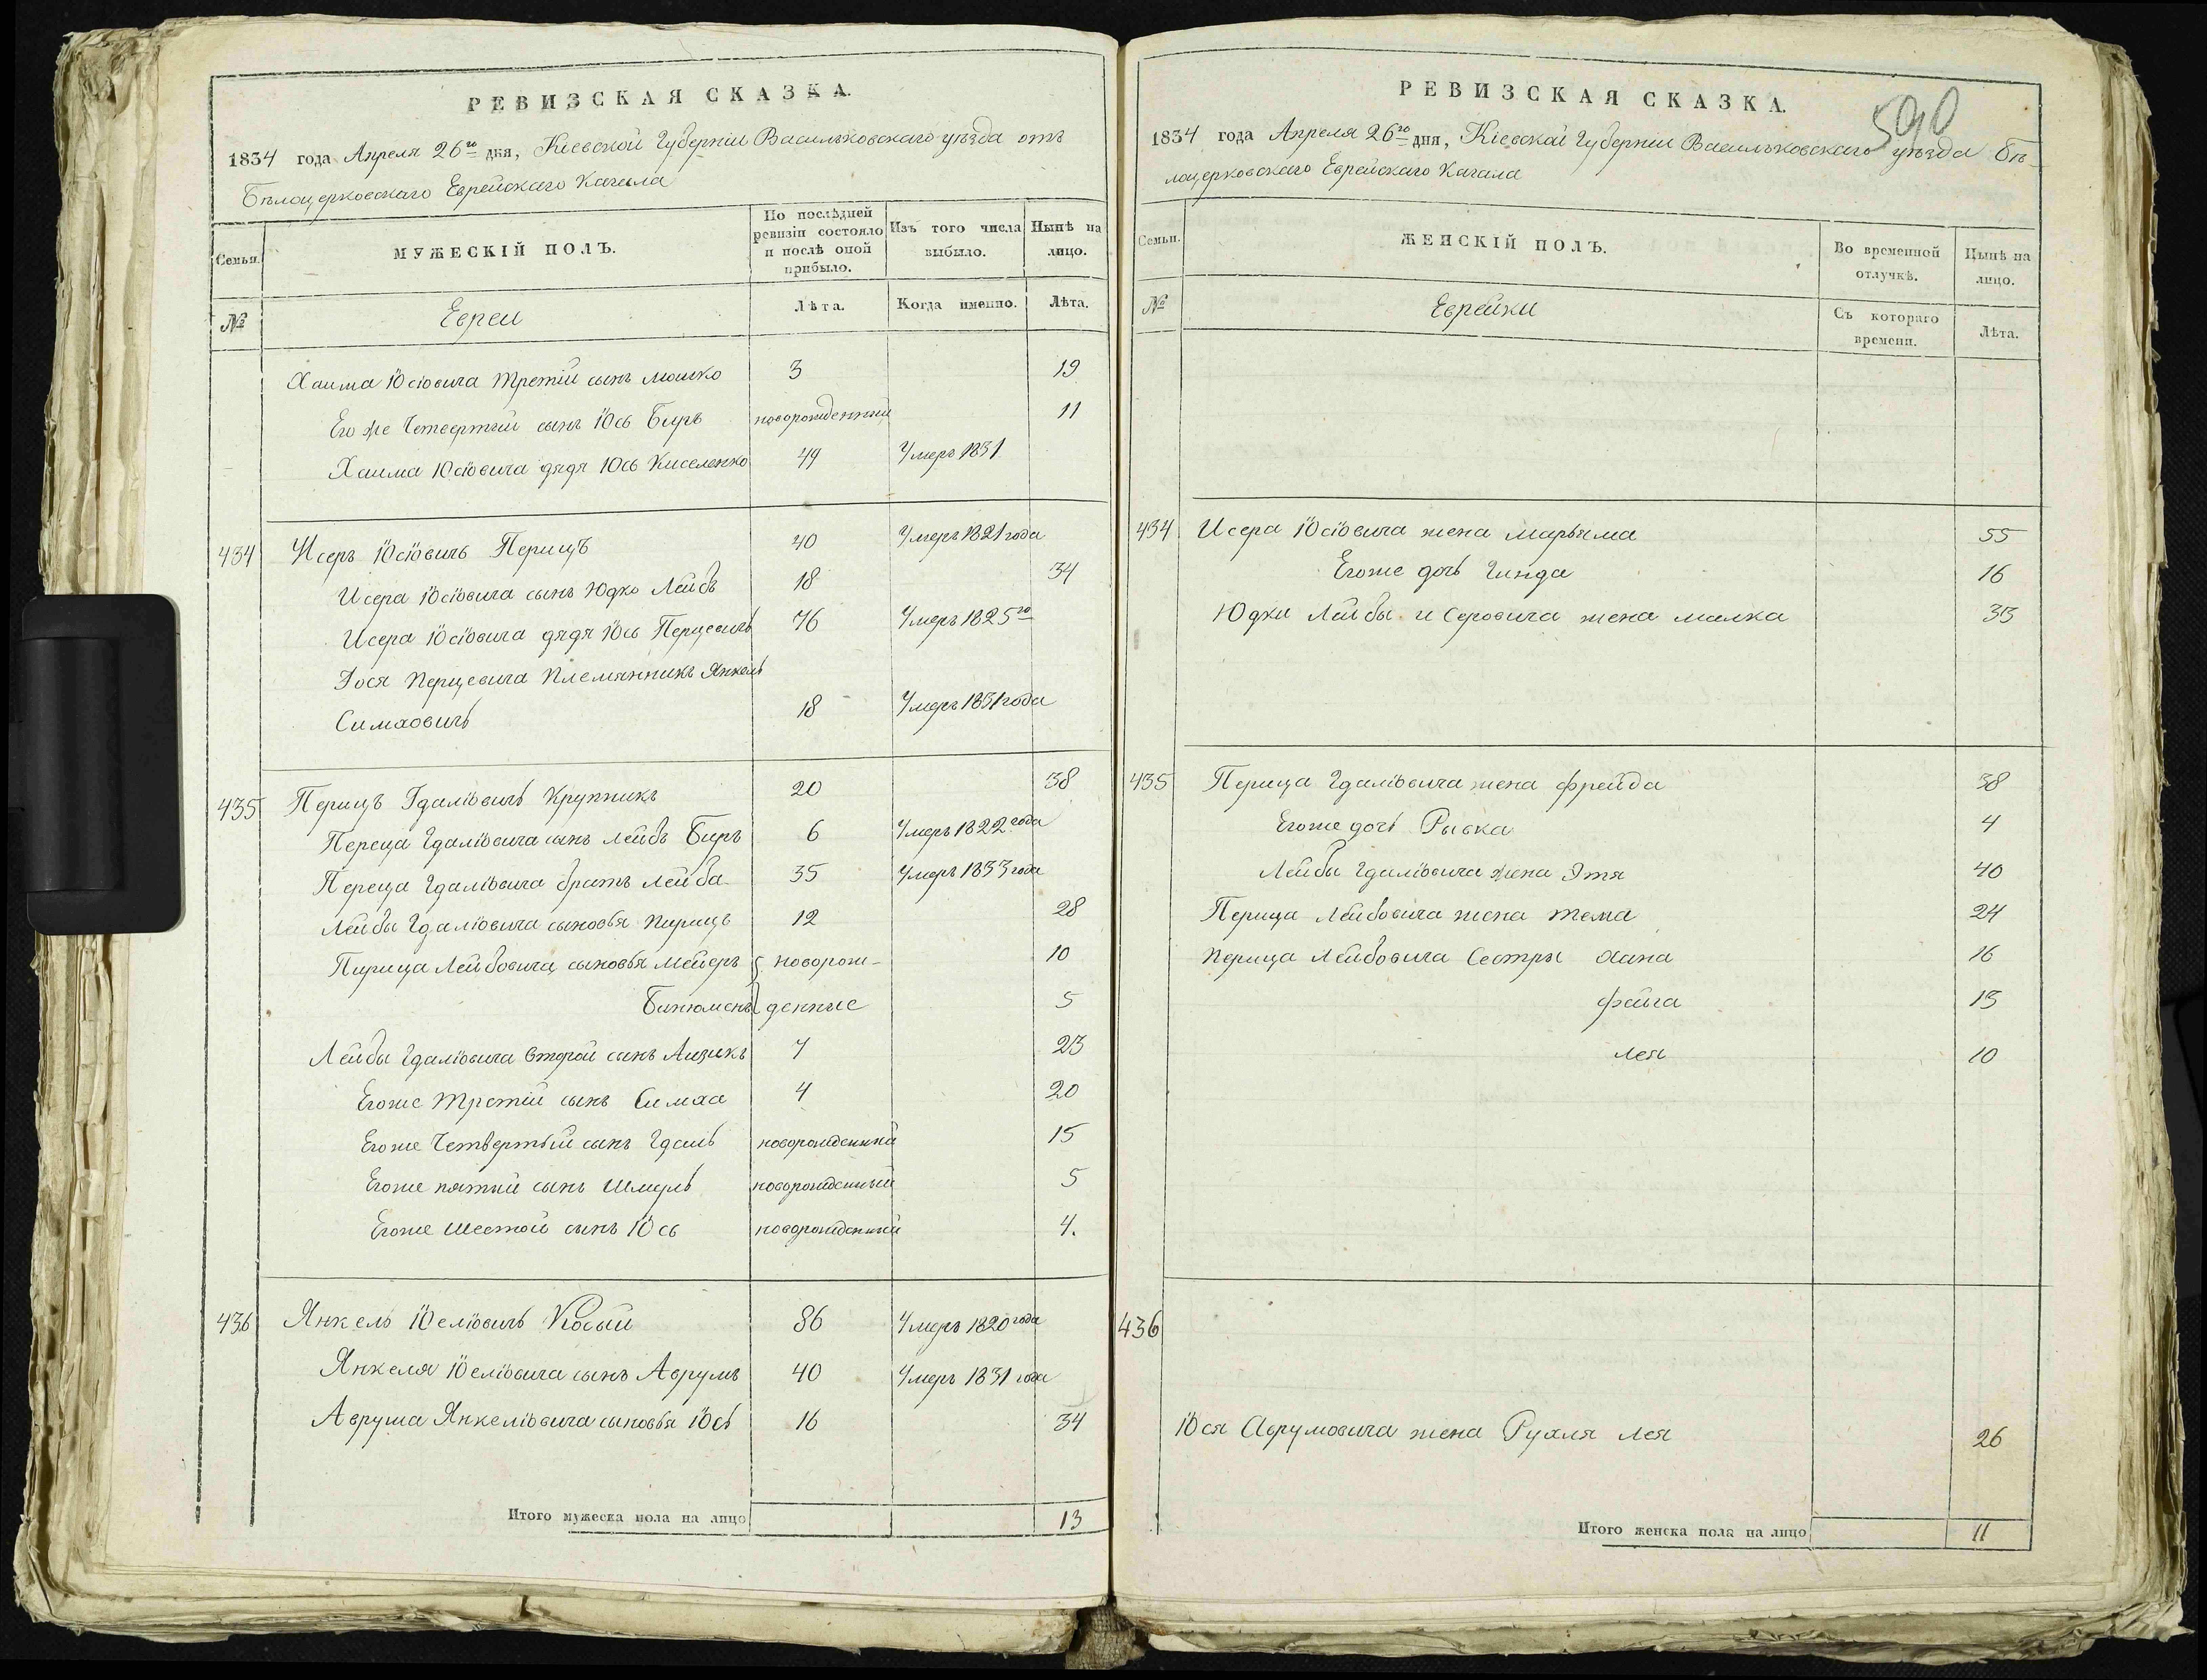 РЕВИЗСКАЯ СКАЗКА.
1834 года Апреля 26го дня, Кіевской Губерніи Васильковскаго уѣзда отъ
Бѣлоцерковскаго Еврейскаго Кагала
Семьи.
МУЖЕСКІЙ ПОЛЪ.
По послѣдней ревизіи состояло и послѣ оной прибыло.
Изъ того числа выбыло.
Нынѣ на лицо.
№
Евреи
Лѣта.
Когда именно.
Лѣта.
Хаима Іосіовича третій сынъ Мошко 3 19
Его же Четвертый сынъ Іось Беръ новорожденный 11
Хаима Юсіовича дядя Юсь Киселенко 49 Умеръ 1831
434 Исеръ Іосіовичъ Перицъ 40 Умеръ 1821 года
Исера Іосіовича сынъ Юдко Лейбъ 18 34
Исера Іосіовича дядя Іось Перцевичъ 76 Умеръ 1825го
Іося Перцевича Племянникъ Янкель
Симховичъ 18 Умеръ 1831 года
435 Перицъ Гдаліовичъ Крупникъ 20 38
Переца Гдаліовича сынъ Лейбъ Беръ 6 Умеръ 1822 года
Переца Гдаліовича братъ Лейба 35 Умеръ 1833 года
Лейбы Гдаліовича сыновья Пирицъ 12 28
Пирица Лейбовича сыновья Мейеръ новорож- 10
Бинюменъ денные 5
Лейбы Гдаліовича Второй сынъ Аизикъ 7 23
Егоже Третій сынъ Симха 4 20
Егоже Четвертый сынъ Гдаль новорожденный 15
Егоже пятый сынъ Шмуль новорожденный 5
Егоже Шестой сынъ Іось новорожденный 4.
436 Янкель Іоеліовичъ Косый 86 Умеръ 1820 года
Янкеля Іоеліовича сынъ Аврумъ 40 Умеръ 1831 года
Аврума Янкеліовича сыновья Іось 16 34
Итого мужеска пола на лицо 13
590
РЕВИЗСКАЯ СКАЗКА.
1834 года Апреля 26го дня, Кіевской Губерніи Васильковскаго уѣзда Бѣ-
лоцерковскаго Еврейскаго Кагала
Семьи.
ЖЕНСКІЙ ПОЛЪ.
Во временной отлучкѣ.
Нынѣ на лицо.
№
Еврейки
Съ котораго времени.
Лѣта.
434 Исера Іосіовича жена Марьяма 55
Егоже дочь Гинда 16
Юдки Лейбы Исеровича жена Малка 33
435 Перица Гдаліовича жена Фрейда 38
Егоже дочь Рывка 4
Лейбы Гдаліовича жена Этя 40
Перица Лейбовича жена Тема 24
Перица Лейбовича Сестры Хана 16
Фейга 13
Лея 10
436
Іося Аврумовича жена Рухля Лея 26
Итого женска пола на лицо 11